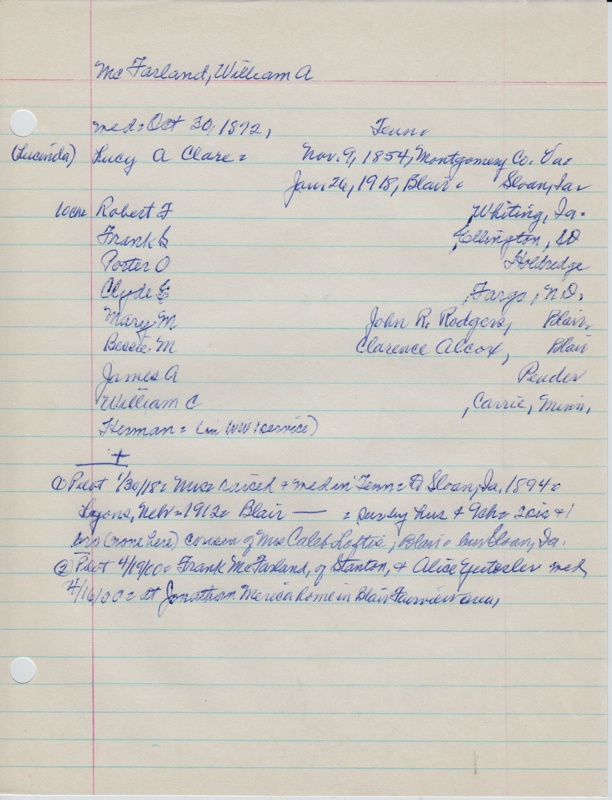 McFarland, William A
med = Oct 30, 1872, Tenn.
(Lucinda) Lucy A Clare = Nov. 9, 1854, Montgomery Co. Va =
Jan. 26, 1918, Blair = Sloan, Ia
Robert F Whiting, Ia.
Frank S , Ellington, SD
Porter O Holbredge
Clyde E , Fargo, N.D.
Mary M John R. Rodgers, Blair,
Bessie M Clarence Alcox, Blair
James A Pender
William C , Carrie, Minn.
Herman = (in WW 1 service)
+
① Pilot 1/30/18 = Mrs = raised + med in Tenn = Sloan, Ia, 1894 =
Lyons, Nebr = 1912 = Blair — = surv by hus + 9ch = 2 sis + 1
bro (none here) cousin of Mrs Caleb Loftis, Blair = bur Sloan, Ia.
② Pilot 4/19/00 = Frank McFarland, of Stanton, + Alice med
4/16/00 = at Jonathan Merica home in Blair Fairview area,